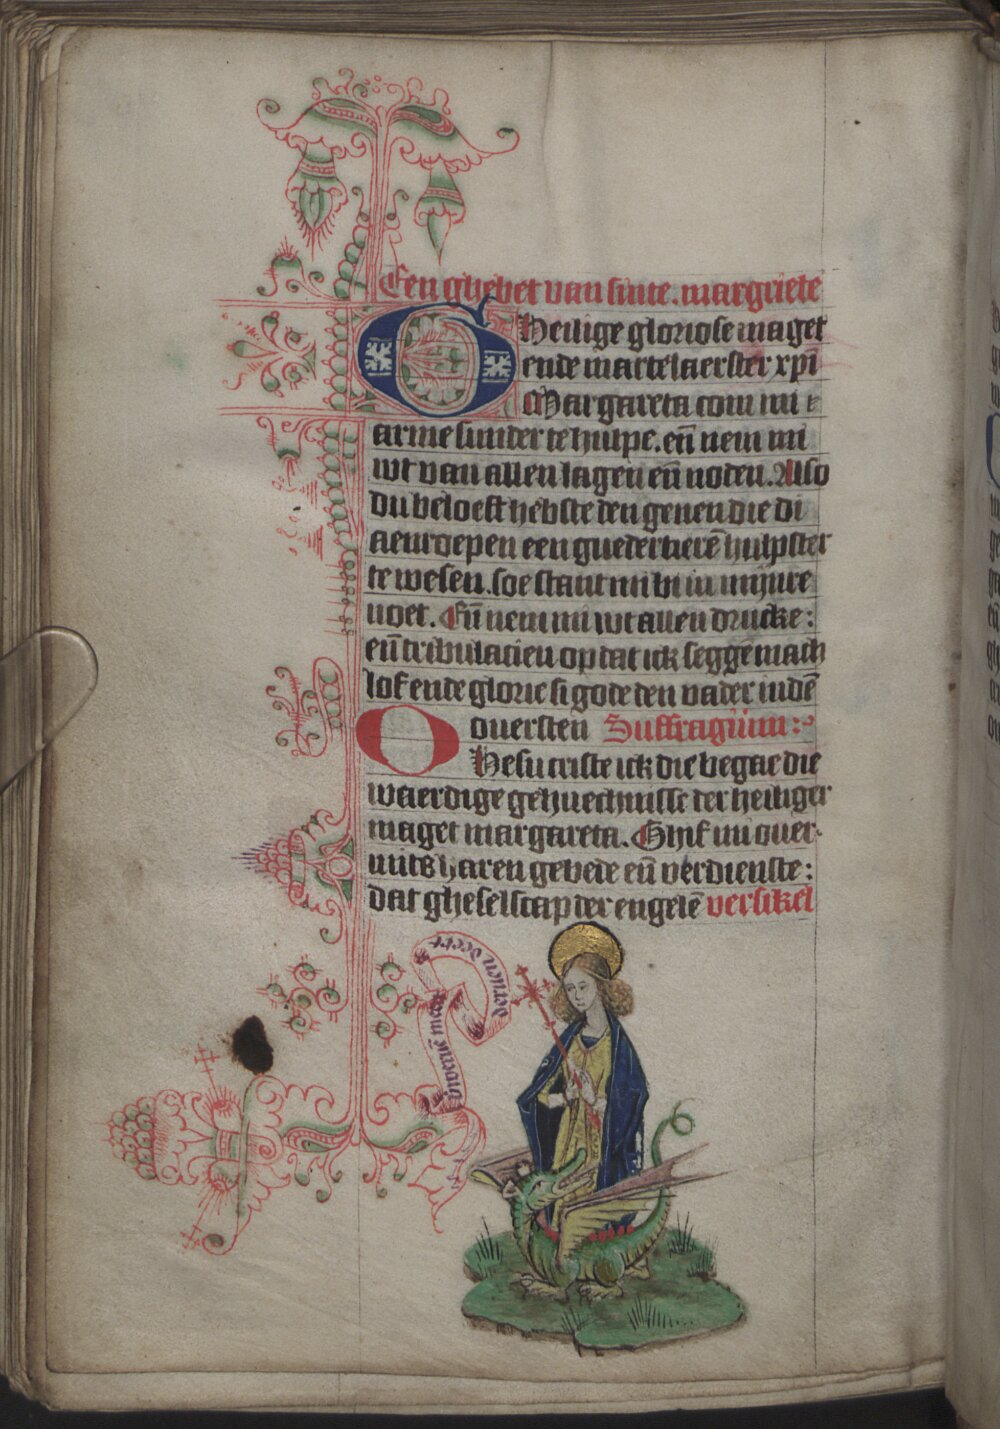 Een ghebet van sinte. margriete
O Heilige gloriose maget
ende martelaerster xp̄i
Margareta com mi
arme sunder te hulpe. eñ nem mi
wt van allen lagen eñ noden. Also
du beloeft hebste den genen die di
aenroepen een guedertierē hulpster
te wesen. soe stant mi bi in mijnre
noet. Eñ nem mi wt allen drucke:
eñ tribulacien op dat ick seggē mach
lof ende glorie si gode den vader indē
ouersten Suffragiium:
O Hesu criste ick die begae die
waerdige gehuechnisse der heiliger
maget margareta. Ghif mi ouer
mits haren gebede eñ verdienste:
dat gheselscap der engelē versikel